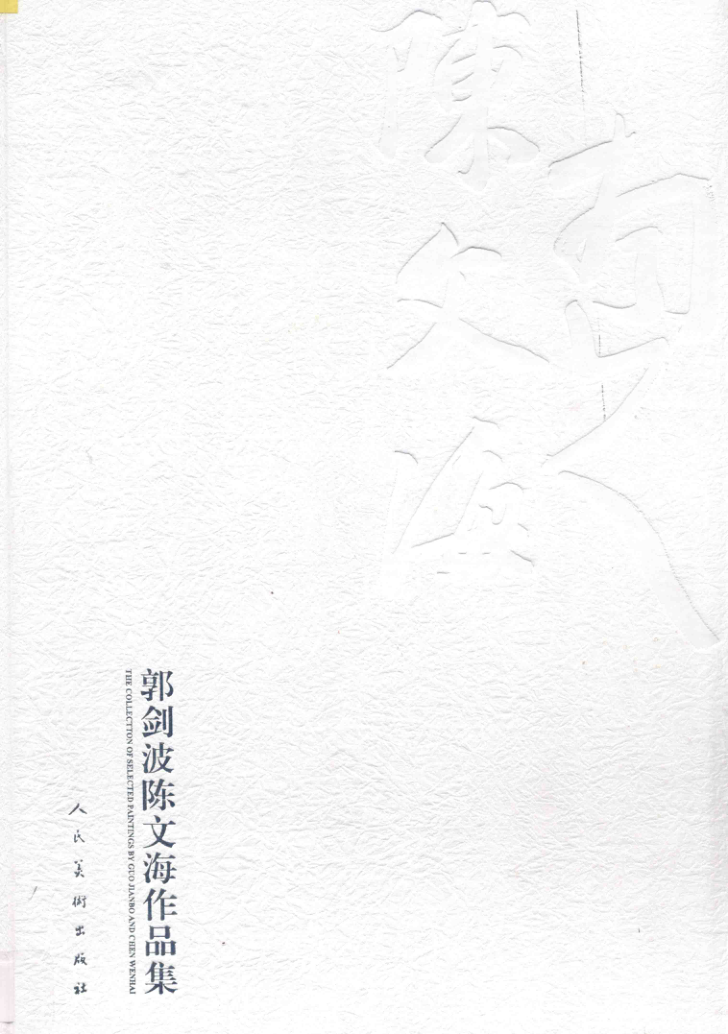 陳文海
郭剑波陈文海作品集
THE COLLECTTON OF SELECTED PAINTINGS BY GUO JIANBO AND CHEN WENHAI
人民美術出版社